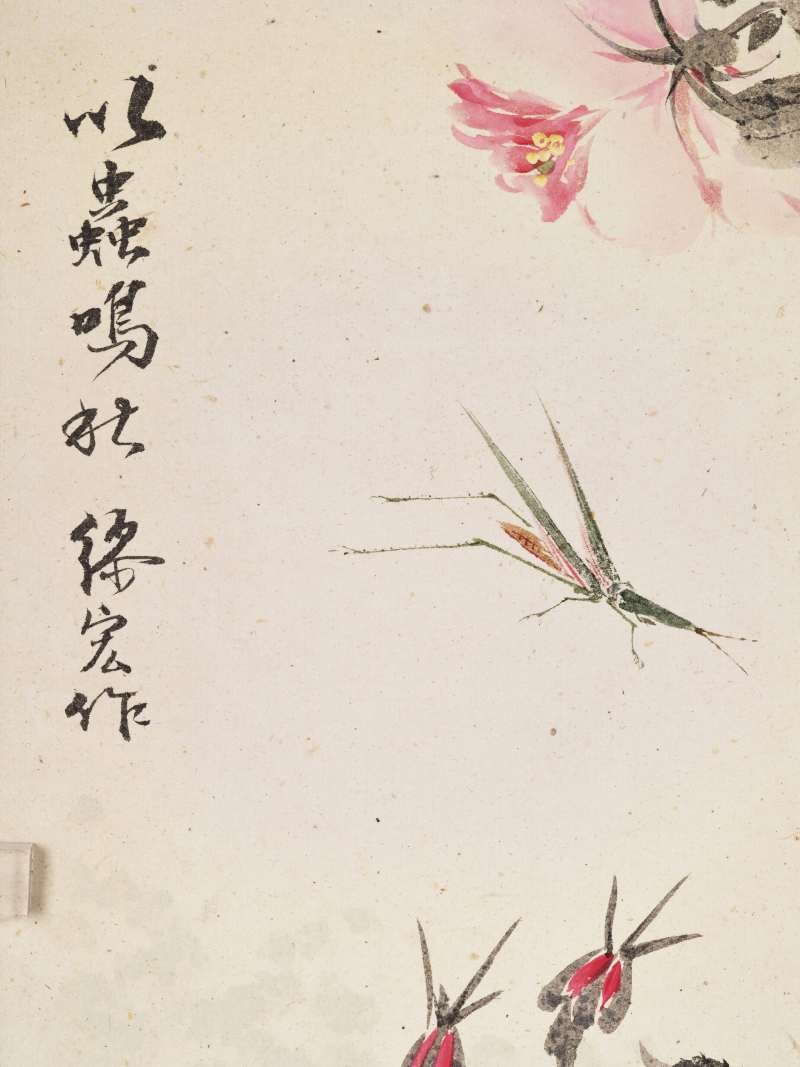 以蟲鳴秋
宏作